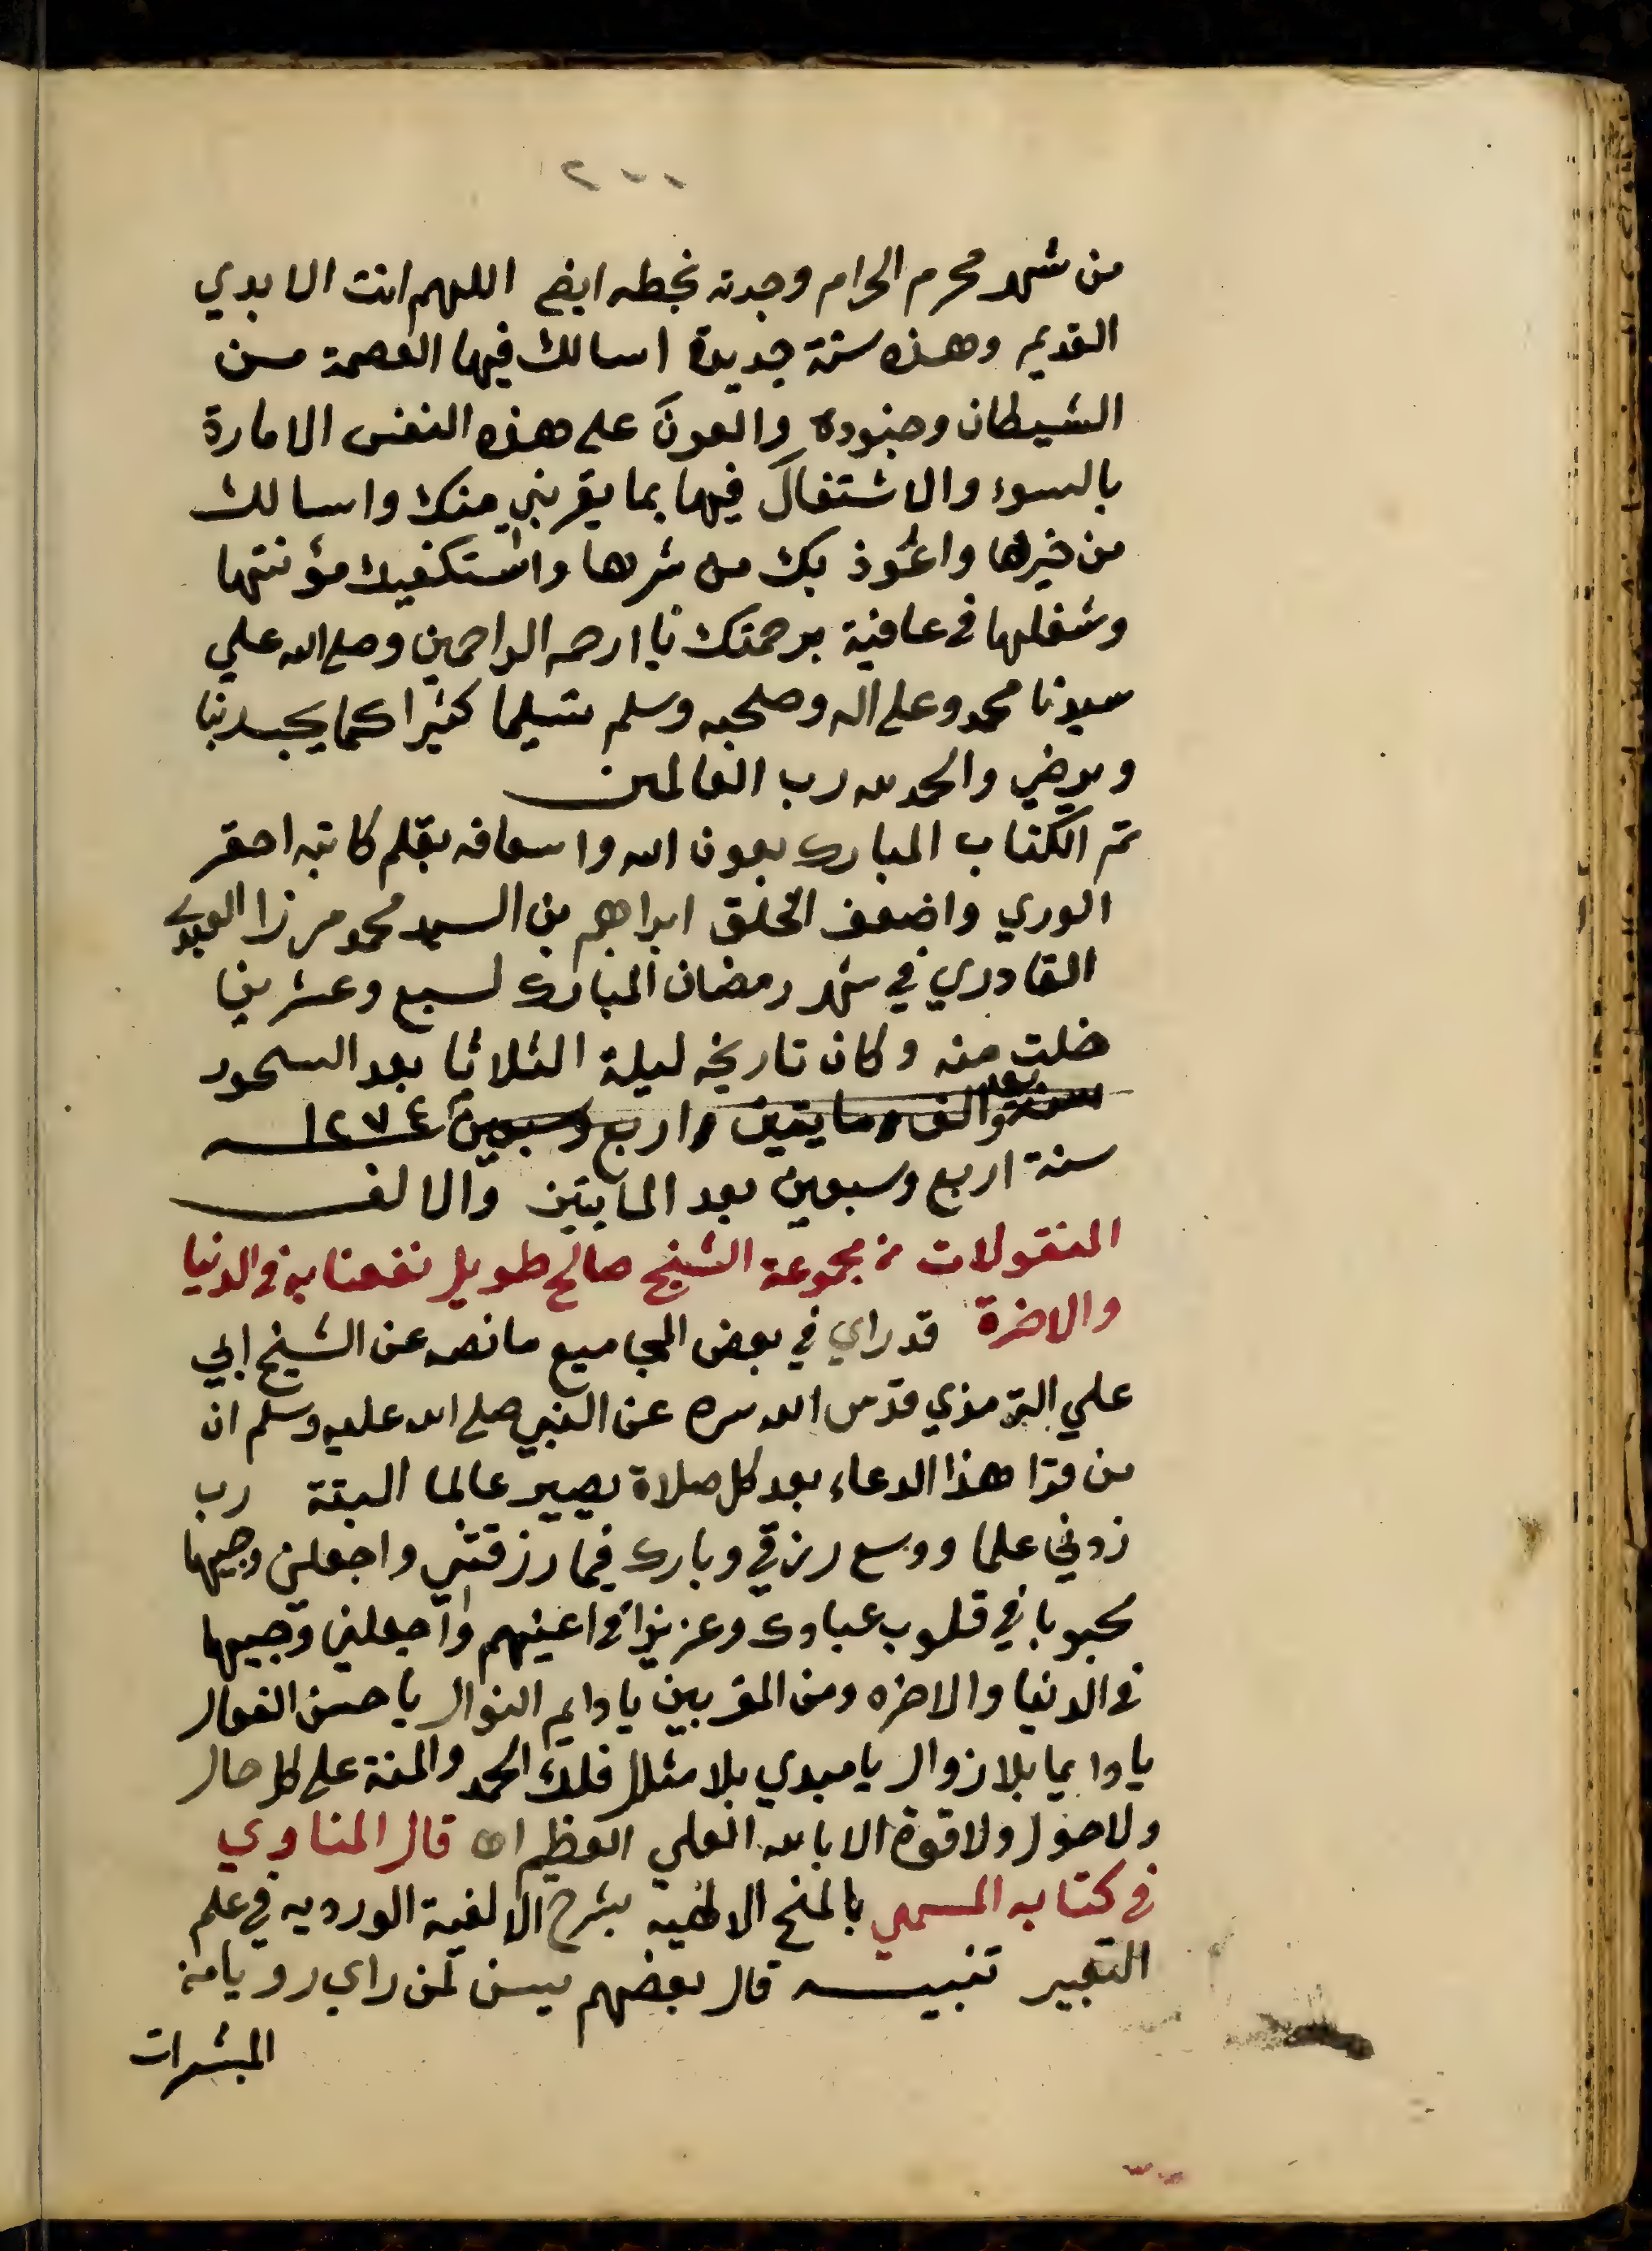 ٢٠٠
من شهر محرم الحرام وجدته بخطه ايضا اللهم انت الابدي
القديم وهذه سنة جديدة اسالك فيها العصمة من
الشيطان وجنوده والعونَ على هذه النفس الامارة
بالسوء والاشتغالَ فيها بما يقربني منك واسالك
من خيرها واعُوذ بك من شرها واستكفيك مؤنتها
وشغلها في عافية برحمتك يا ارحم الراحمين وصلى الله علي
سيدنا محمد وعلى اله وصحبه وسلم تسليما كثيرا كما يحب ربنا
ويرضي والحمد لله رب العالمين
تم الكتاب المبارك بعون الله واسعافه بقلم كاتبه احقر
الوري واضعف الخلق ابراهيم بن السيد محمد مرزا
القادري في شهر رمضان المبارك لسبع وعشرين
خلت منه وكان تاريخه ليلة الثلاثا بعد السحور
سنة والف ومايتين واربع وسبعين ١٢٧٤
سنة اربع وسبعين بعد المايتين والالف
المنقولات من مجموعة الشيخ صالح طويل نفعنا به في الدنيا
والاخرة قد راي في بعض المجاميع ما نصه عن الشيخ ابي
علي الترمذي قدس الله سره عن النبي صلى الله عليه وسلم ان
من قرا هذا الدعاء بعد كل صلاة يصير عالما البتة رب
زدني علما ووسع رزقي وبارك فيما رزقتني واجعلني وجيها
محبوبا في قلوب عبادك وعزيزا في اعينهم واجعلني وجيها
في الدنيا والاخره ومن المقربين يا دايم النوال يا حسن الفعال
يا دايما بلا زوال يا مبدي بلا مثال فلك الحمد والمنة على كل حال
ولا حول ولا قوة الا بالله العلي العظيم اه قال المناوي
في كتابه المسمي بالمنح الالهيه بشرح الالفية الورديه في علم
التعبير تنبيه قال بعضهم يسن لمن راي رويا من
المبشرات